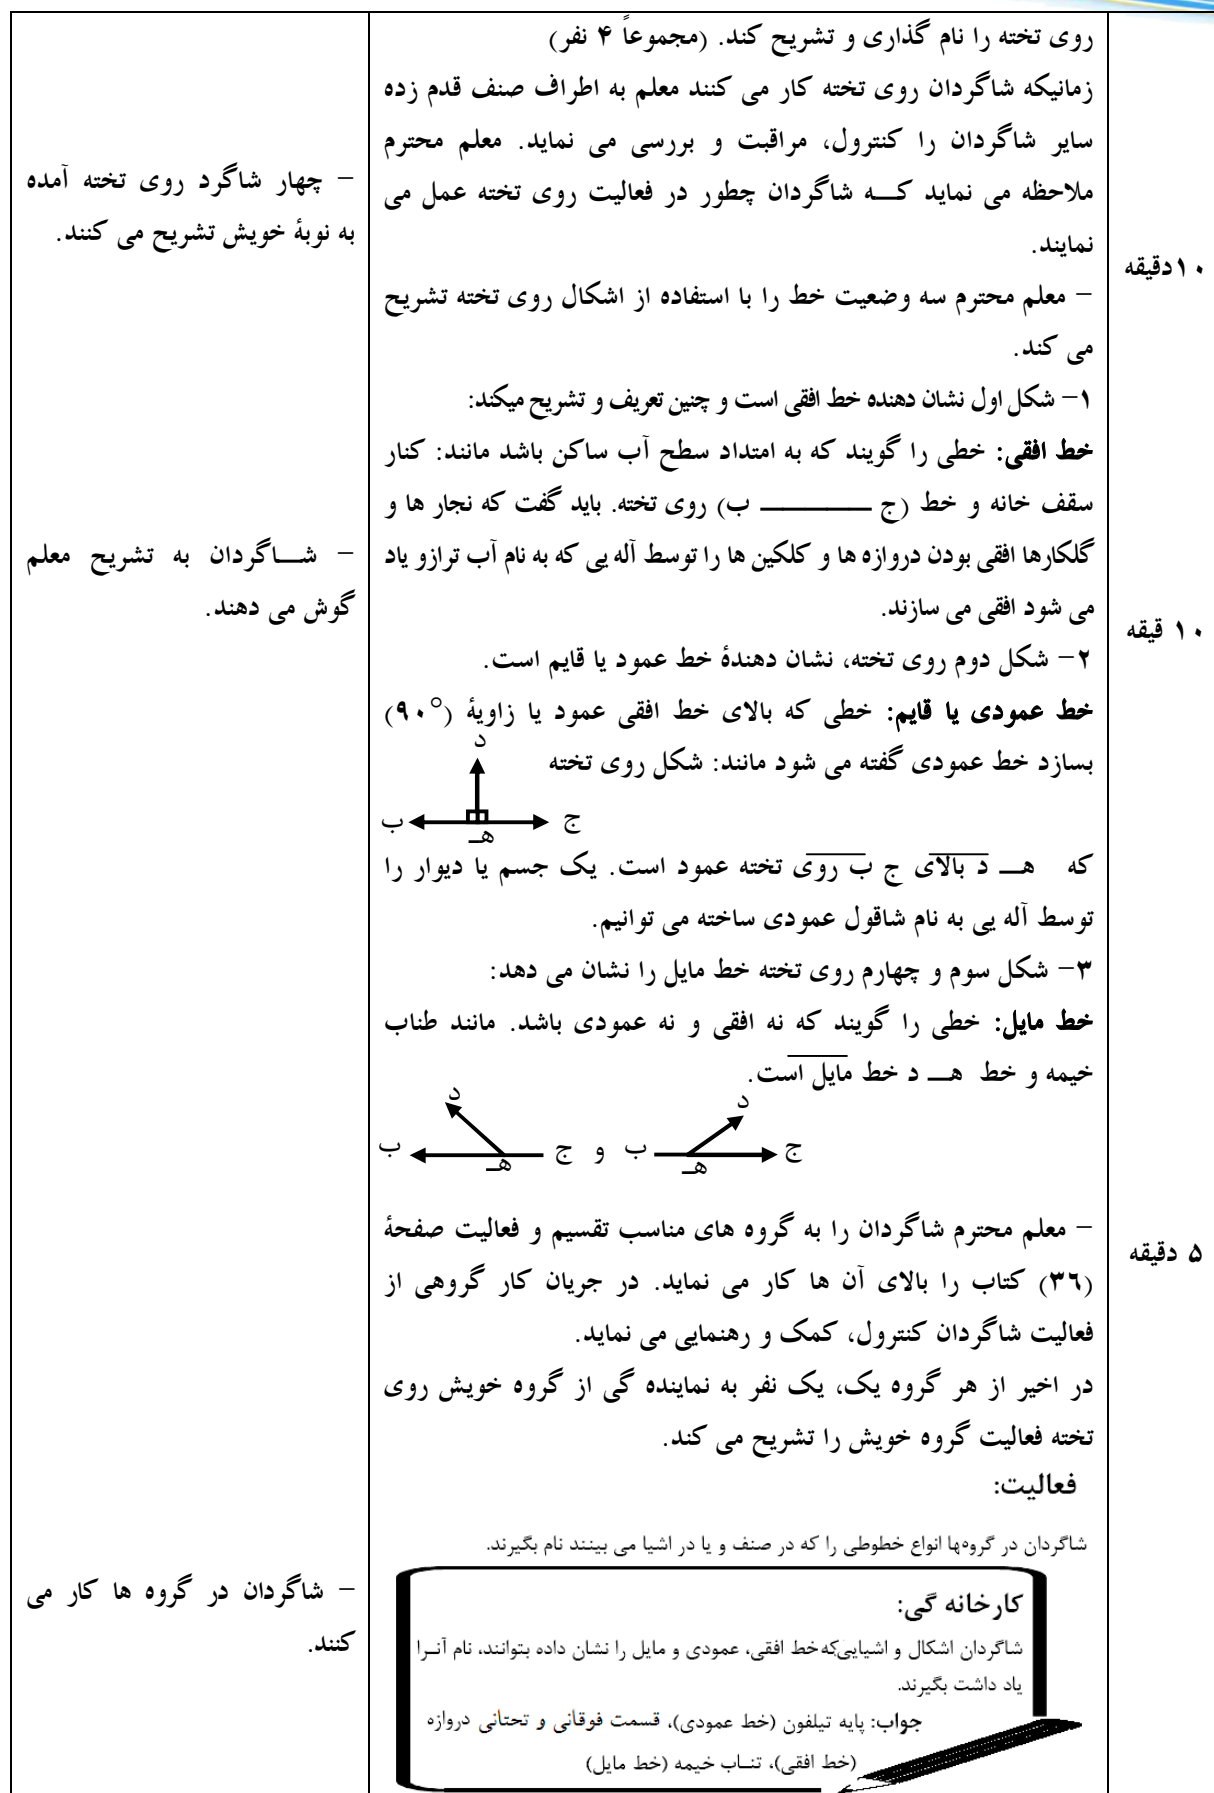 روی تخته را نام گذاری و تشریح کند. (مجموعاً ۴ نفر)
زمانیکه شاگردان روی تخته کار می کنند معلم به اطراف صنف قدم زده
سایر شاگردان را کنترول، مراقبت و بررسی می نماید. معلم محترم
ملاحظه می نماید کــه شاگردان چطور در فعالیت روی تخته عمل می
نمایند.
– معلم محترم سه وضعیت خط را با استفاده از اشکال روی تخته تشریح
می کند.
۱– شکل اول نشان دهنده خط افقی است و چنین تعریف و تشریح میکند:
خط افقی: خطی را گویند که به امتداد سطح آب ساکن باشد مانند: کنار
سقف خانه و خط (ج ــــــــــــ ب) روی تخته. باید گفت که نجار ها و
گلکارها افقی بودن دروازه ها و کلکین ها را توسط آله یی که به نام آب ترازو یاد
می شود افقی می سازند.
۲– شکل دوم روی تخته، نشان دهندۀ خط عمود یا قایم است.
خط عمودی یا قایم: خطی که بالای خط افقی عمود یا زاویۀ (۹۰°)
بسازد خط عمودی گفته می شود مانند: شکل روی تخته
د
ج
ب
هـ
که هــ د بالای ج ب روی تخته عمود است. یک جسم یا دیوار را
توسط آله یی به نام شاقول عمودی ساخته می توانیم.
۳– شکل سوم و چهارم روی تخته خط مایل را نشان می دهد:
خط مایل: خطی را گویند که نه افقی و نه عمودی باشد. مانند طناب
خیمه و خط هــ د خط مایل است.
د د
ج ب و ج ب
هـ هـ
– معلم محترم شاگردان را به گروه های مناسب تقسیم و فعالیت صفحۀ
(۳٦) کتاب را بالای آن ها کار می نماید. در جریان کار گروهی از
فعالیت شاگردان کنترول، کمک و رهنمایی می نماید.
در اخیر از هر گروه یک، یک نفر به نماینده گی از گروه خویش روی
تخته فعالیت گروه خویش را تشریح می کند.
فعالیت:
شاگردان در گروه‌ها انواع خطوطی را که در صنف و یا در اشیا می بینند نام بگیرند.
کارخانه گی:
شاگردان اشکال و اشیایی‌که خط افقی، عمودی و مایل را نشان داده بتوانند، نام آنـرا
یاد داشت بگیرند.
جواب: پایه تیلفون (خط عمودی)، قسمت فوقانی و تحتانی دروازه
(خط افقی)، تنـاب خیمه (خط مایل)
– چهار شاگرد روی تخته آمده
به نوبۀ خویش تشریح می کنند.
– شــاگردان به تشریح معلم
گوش می دهند.
– شاگردان در گروه ها کار می
کنند.
۱۰دقیقه
۱۰ قیقه
۵ دقیقه